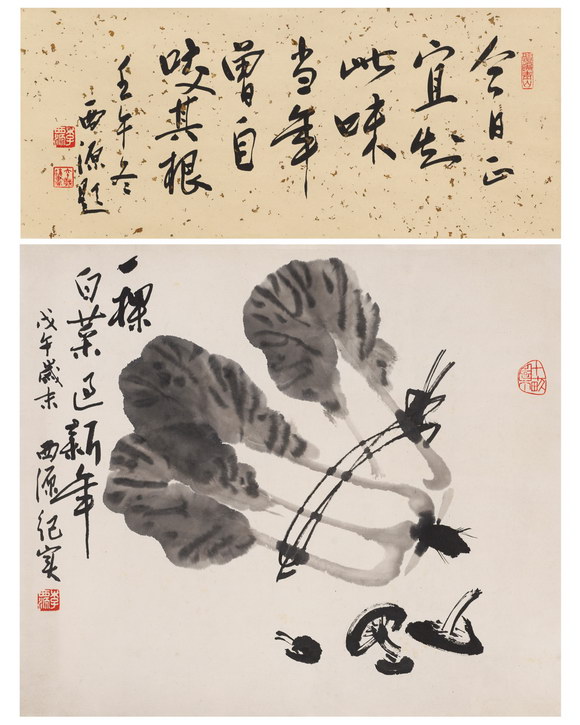 今日正
宜知
此味
当年
曾自
咬其根
壬午冬
西源题
一棵
白菜过新年
戊午歲末 西源纪实